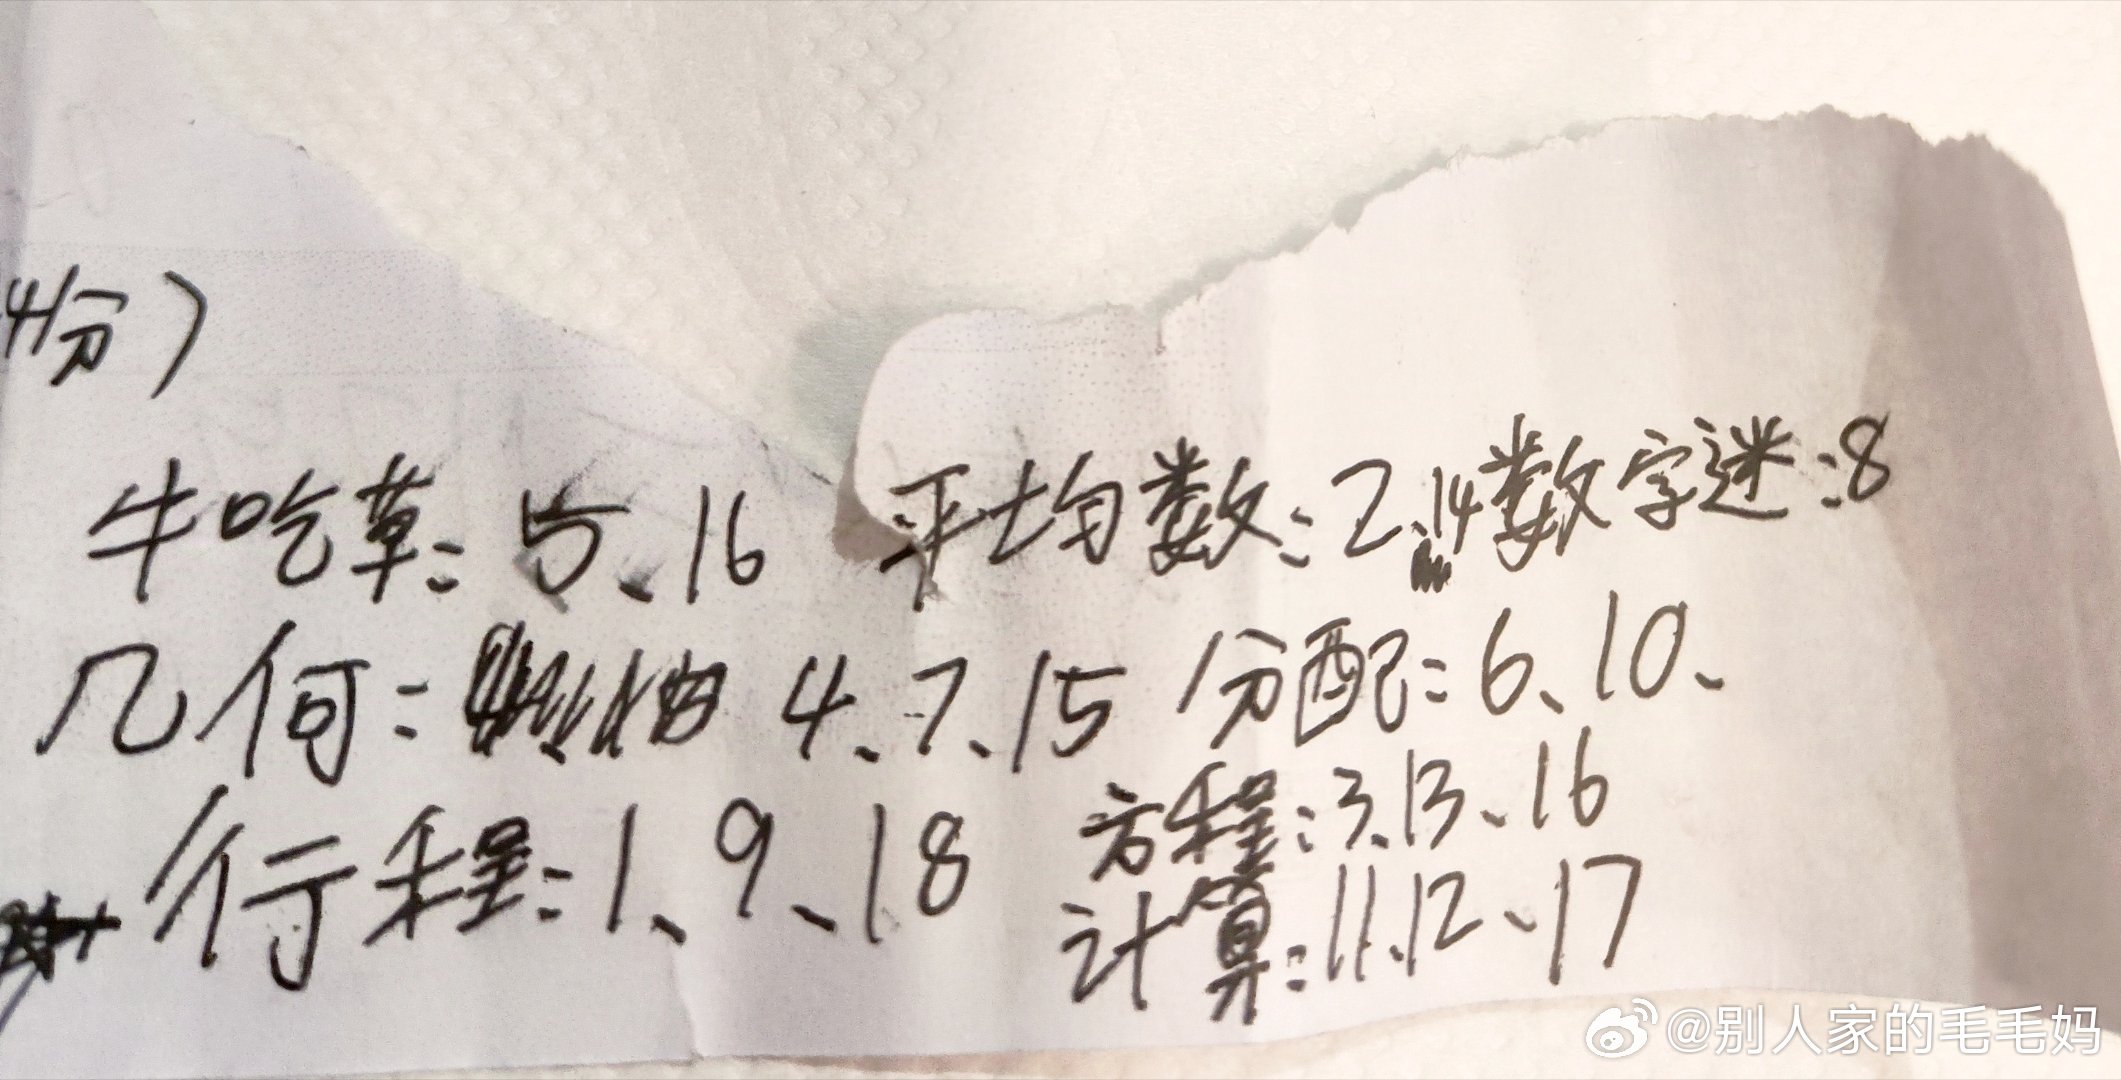 4分)
牛吃草:5、16 平均数:2、14 数字迷:8
几何: 4、7、15 分配:6、10、
行程:1、9、18 方程:3、13、16
计算:11、12、17
@别人家的毛毛妈